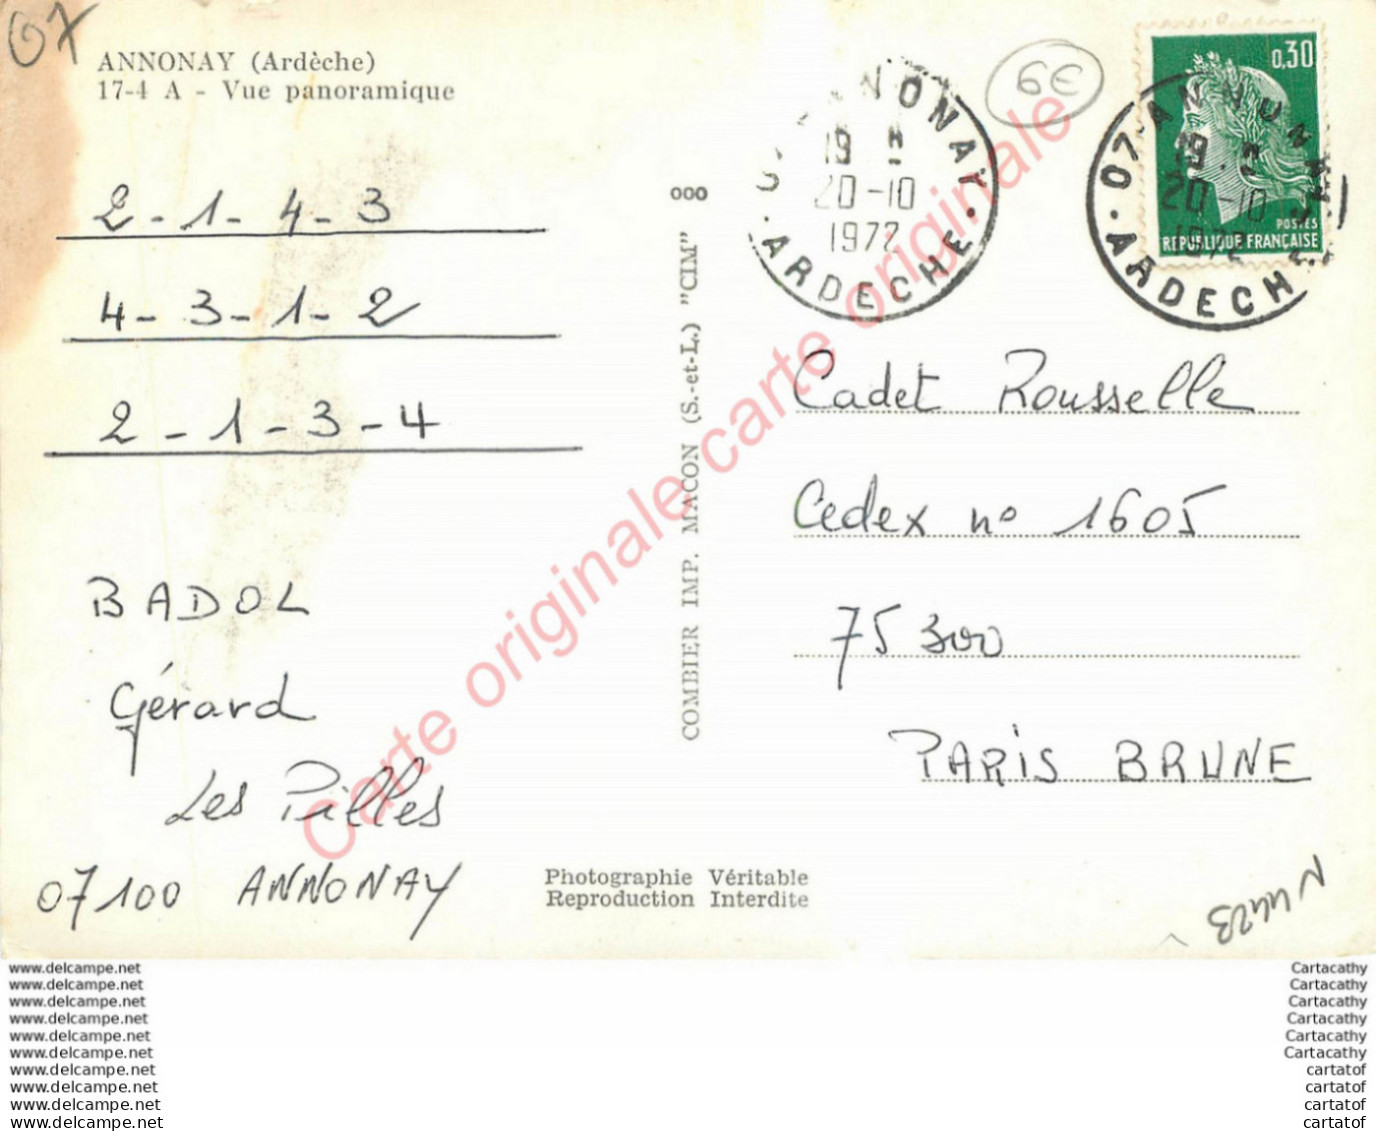 07
ANNONAY (Ardèche)
17-4 A - Vue panoramique
2 - 1 - 4 - 3
4 - 3 - 1 - 2
2 - 1 - 3 - 4
BADOL
Gérard
Les Pilles
07100 ANNONAY
Photographie Véritable
Reproduction Interdite
ooo
COMBIER IMP. MACON (S.-et-L.) "CIM"
Carte originale carte originale
ANNONAY
19 H
20-10
1972
ARDECHE
6€
0,30
POSTES
REPUBLIQUE FRANÇAISE
07 ANNONAY
19 H
20-10
1972
ARDECHE
Cadet Rousselle
Cedex no 1605
75300
PARIS BRUNE
N 4423
www.delcampe.net
www.delcampe.net
www.delcampe.net
www.delcampe.net
www.delcampe.net
www.delcampe.net
www.delcampe.net
www.delcampe.net
www.delcampe.net
www.delcampe.net
Cartacathy
Cartacathy
Cartacathy
Cartacathy
Cartacathy
Cartacathy
cartatof
cartatof
cartatof
cartatof